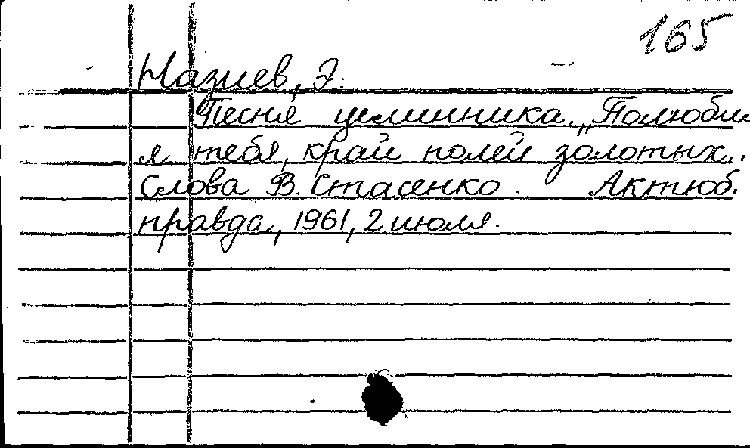 165
Назиев, Э.
Песня целинника „Полюбил
я тебя, край полей золотых..
Слова В. Стасенко. Актюб.
правда, 1961, 2 июля.